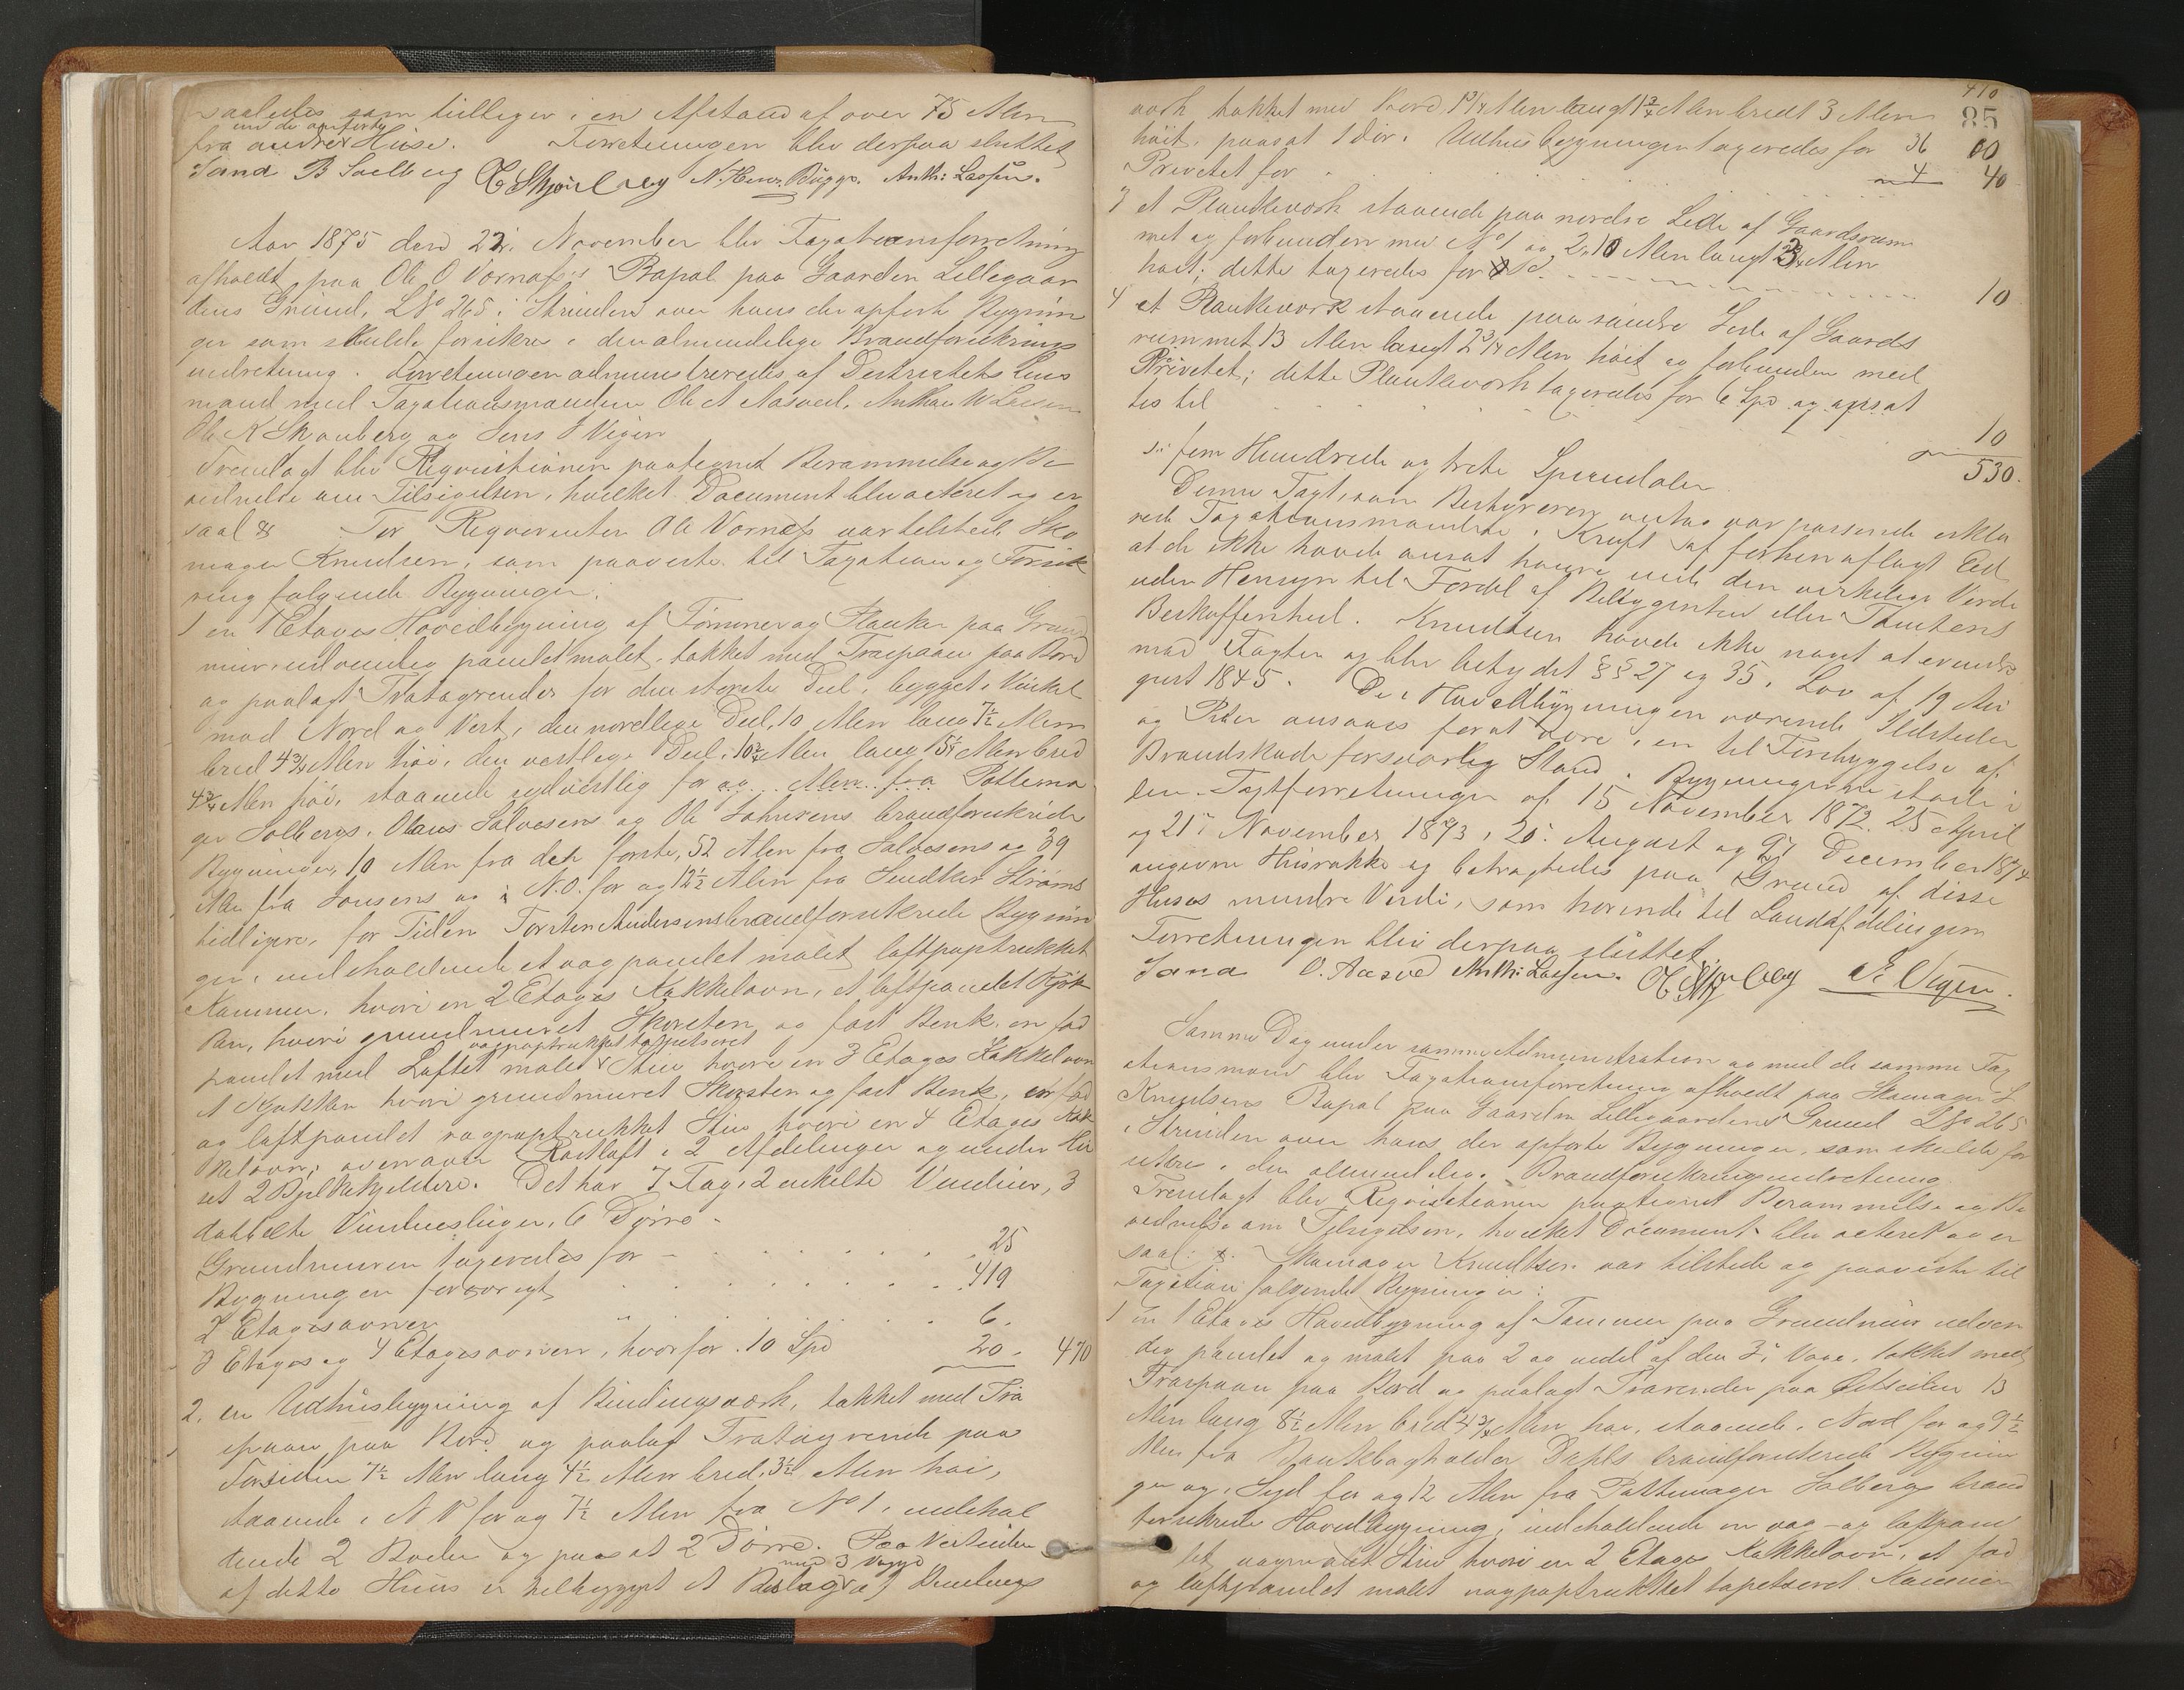 saaledes som tilliger i en Afstand af over 75 Alen
end de anførte
fra andre Huse. Forretningen blev derpaa sluttet
Sand B Soelberg N. Henr. Bügge. Anth: Lassen.
Aar 1875 den 22 November blev Taxationsforretning
afholdt paa Ole O Vornæss Bopæl paa Gaarden Lillegaar
dens Grund, LNo 265 i Strinden over hans der opførte Bygnin
ger som skulde forsikres i den almindelige Brandforsikrings
indretning. Forretningen administreredes af Distriktets Lens
mand med Taxationsmændene Ole A Aasved, Anthon W Lassen
Ole K Skonberg og Jens J Vigen
Fremlagt blev Reqvisitionen paategnet Berammelse og Be
vidnelse om Tilsigelsen, hvilket Document blev acteret og er
saal Før Reqvirenten Ole Vornæss var tilstede Sko
mager Knudsen, som paaviste til Taxation og Forsik
ring følgende Bygninger.
1 en 1 Etages Hovedbygning af Tømmer og Planker paa Grund
mur, udvendig panelet malet, tækket med Træspaan paa Bord
og paalagt Trætagrender for den største Deel, bygget i Vinkel
mod Nord og Vest, den nordlige Deel, 10 Alen lang 7½ Alen
bred 4¾ Alen høi, den vestlige Deel, 10¾ Alen lang Alen bred
4¾ Alen høi, staaende sydvestlig for og Alen fra Pottema
ger Solbergs, Olaus Salvesens og Ole Johnsens brandforsikrede
Bygninger, 10 Alen fra den første, 52 Alen fra Salvesens og 39
Alen fra Jonsens og i N.O. for og 12½ Alen fra Snedker Strøms
tidligere, for Tiden Torsten Andersens brandforsikrede Bygnin
ger, indeholdende et vægpanelet malet loftpaptrukket
Kammer, hvori en 2 Etages Kakkelovn, et loftpanelet Kjøk
ken, hvori grundmuret Skorsten og fast Benk, en fod
vægpaptrukket tapetseret
panelet med Loftet malet Stue hvori en 3 Etages Kakkelovn
et Kjøkken hvori grundmuret Skorsten og fast Benk, en fod
og loftpanelet vægpaptrukket Stue hvori en 4 Etages Kak
kelovn; ovenover Røstloft i 2 Afdelinger og under Hu
set 2 Bjelkekjeldere. Det har 7 Fag, 2 enkelte Vinduer, 3
dobbelte Vinduesluger, 6 Dørre.
Grundmuren taxeredes for 25
Bygningen forøvrigt 419
2 Etagesovnen 6.
3 Etages og 4 Etagesovnen, hvorfor 10 Spd 20. 470
2. en Udhusbygning af Bindingsværk, tækket med Træ
spaan paa Bord og paalagt Trætagrende paa
Forsiden 7½ Alen lang 4½ Alen bred, 3½ Alen høi,
staaende i N V for og 7½ Alen fra No 1, indehol
dende 2 Boder og paasat 2 Dørre. Paa Vestsiden
med 3 Vægge
af dette Huus er tilbygget et Beslag af Bindings
410
85
værk tækket med Bord 1¾ Alen langt 1¾ Alen bredt 3 Alen
høit, paasat 1 Dør. Udhusbygningen taxeredes for 36
Privetet for 4 40
3 et Plankeværk staaende paa nordre Side af Gaardsrum
met og forbunden med No 1 og 2, 10 Alen langt Alen
høit; dette taxeredes for 10
4 et Plankeværk staaende paa søndre Side af Gaards
rummet 13 Alen langt 2¾ Alen høit og forbunden med
Privetet; dette Plankeværk taxeredes for 6 Spd og opsat
tes til 10
530.
s: fem Hundrede og trete Speciedaler
Denne Taxt, som Bestyreren antog var passende erklæ
rede Taxationsmændene i Kraft af forhen aflagt Eed
at de ikke havde ansat høiere end den virkelige Værdi
uden Hensyn til Fordel af Beliggenhed eller Tomtens
Beskaffenhed. Knudtsen havde ikke noget at erindre
mod Taxten og blev betydet §§ 27 og 35 i Lov af 19 Au
gust 1845. De i Hovedbygningen værende Ildsteder
og Piber ansaaes for at være i en til Forebyggelse af
Brandskade forsvarlig Stand. Bygningerne staar i
den i Taxtforretninger af 15 November 1872, 25 April
og 21 November 1873, 20 August og 9 December 1874
angivne Husrække og betragtedes paa Grund af disse
Huses mindre Værdi, som hørende til Landafdelingen
Forretningen blev derpaa sluttet
Sand O. Aasved Anth: Lassen. J. Vigen.
Samme Dag under samme Administration og med de samme Tax
ationsmænd blev Taxationsforretning afholdt paa Skomager
Knudsens Bopæl paa Gaarden Lillegaardens Grund LNo 265
i Strinden over hans der opførte Bygninger, som skulde for
sikres i den almindelige Brandforsikringsindretning
Fremlagt blev Reqvisitionen paategnet Berammelse og Be
vidnelse om Tilsigelsen, hvilket Document blev acteret og er
saal: Skomager Knudtsen var tilstede og paaviste til
Taxation følgende Bygninger:
1 en 1 Etages Hovedbygning af Tømmer paa Grundmuur udven
dig panelet og malet paa 2 og endel af den 3 Væge, tækket med
Træspaan paa Bord og paalagt Trærender paa 13
Alen lang 8½ Alen bred 4¾ Alen høi, staaende i Nord for og 9½
Alen fra Bankbogholder Dahls brandforsikrede Bygnin
ger og i Syd for og 12 Alen fra Pottemager Solbergs brand
forsikrede Hovedbygning, indeholdende en væg- og loftpane
let, vægmalet Stue hvori en 2 Etages Kakkelovn, et fod
og loftpanelet malet vægpaptrukket tapetseret Kammer